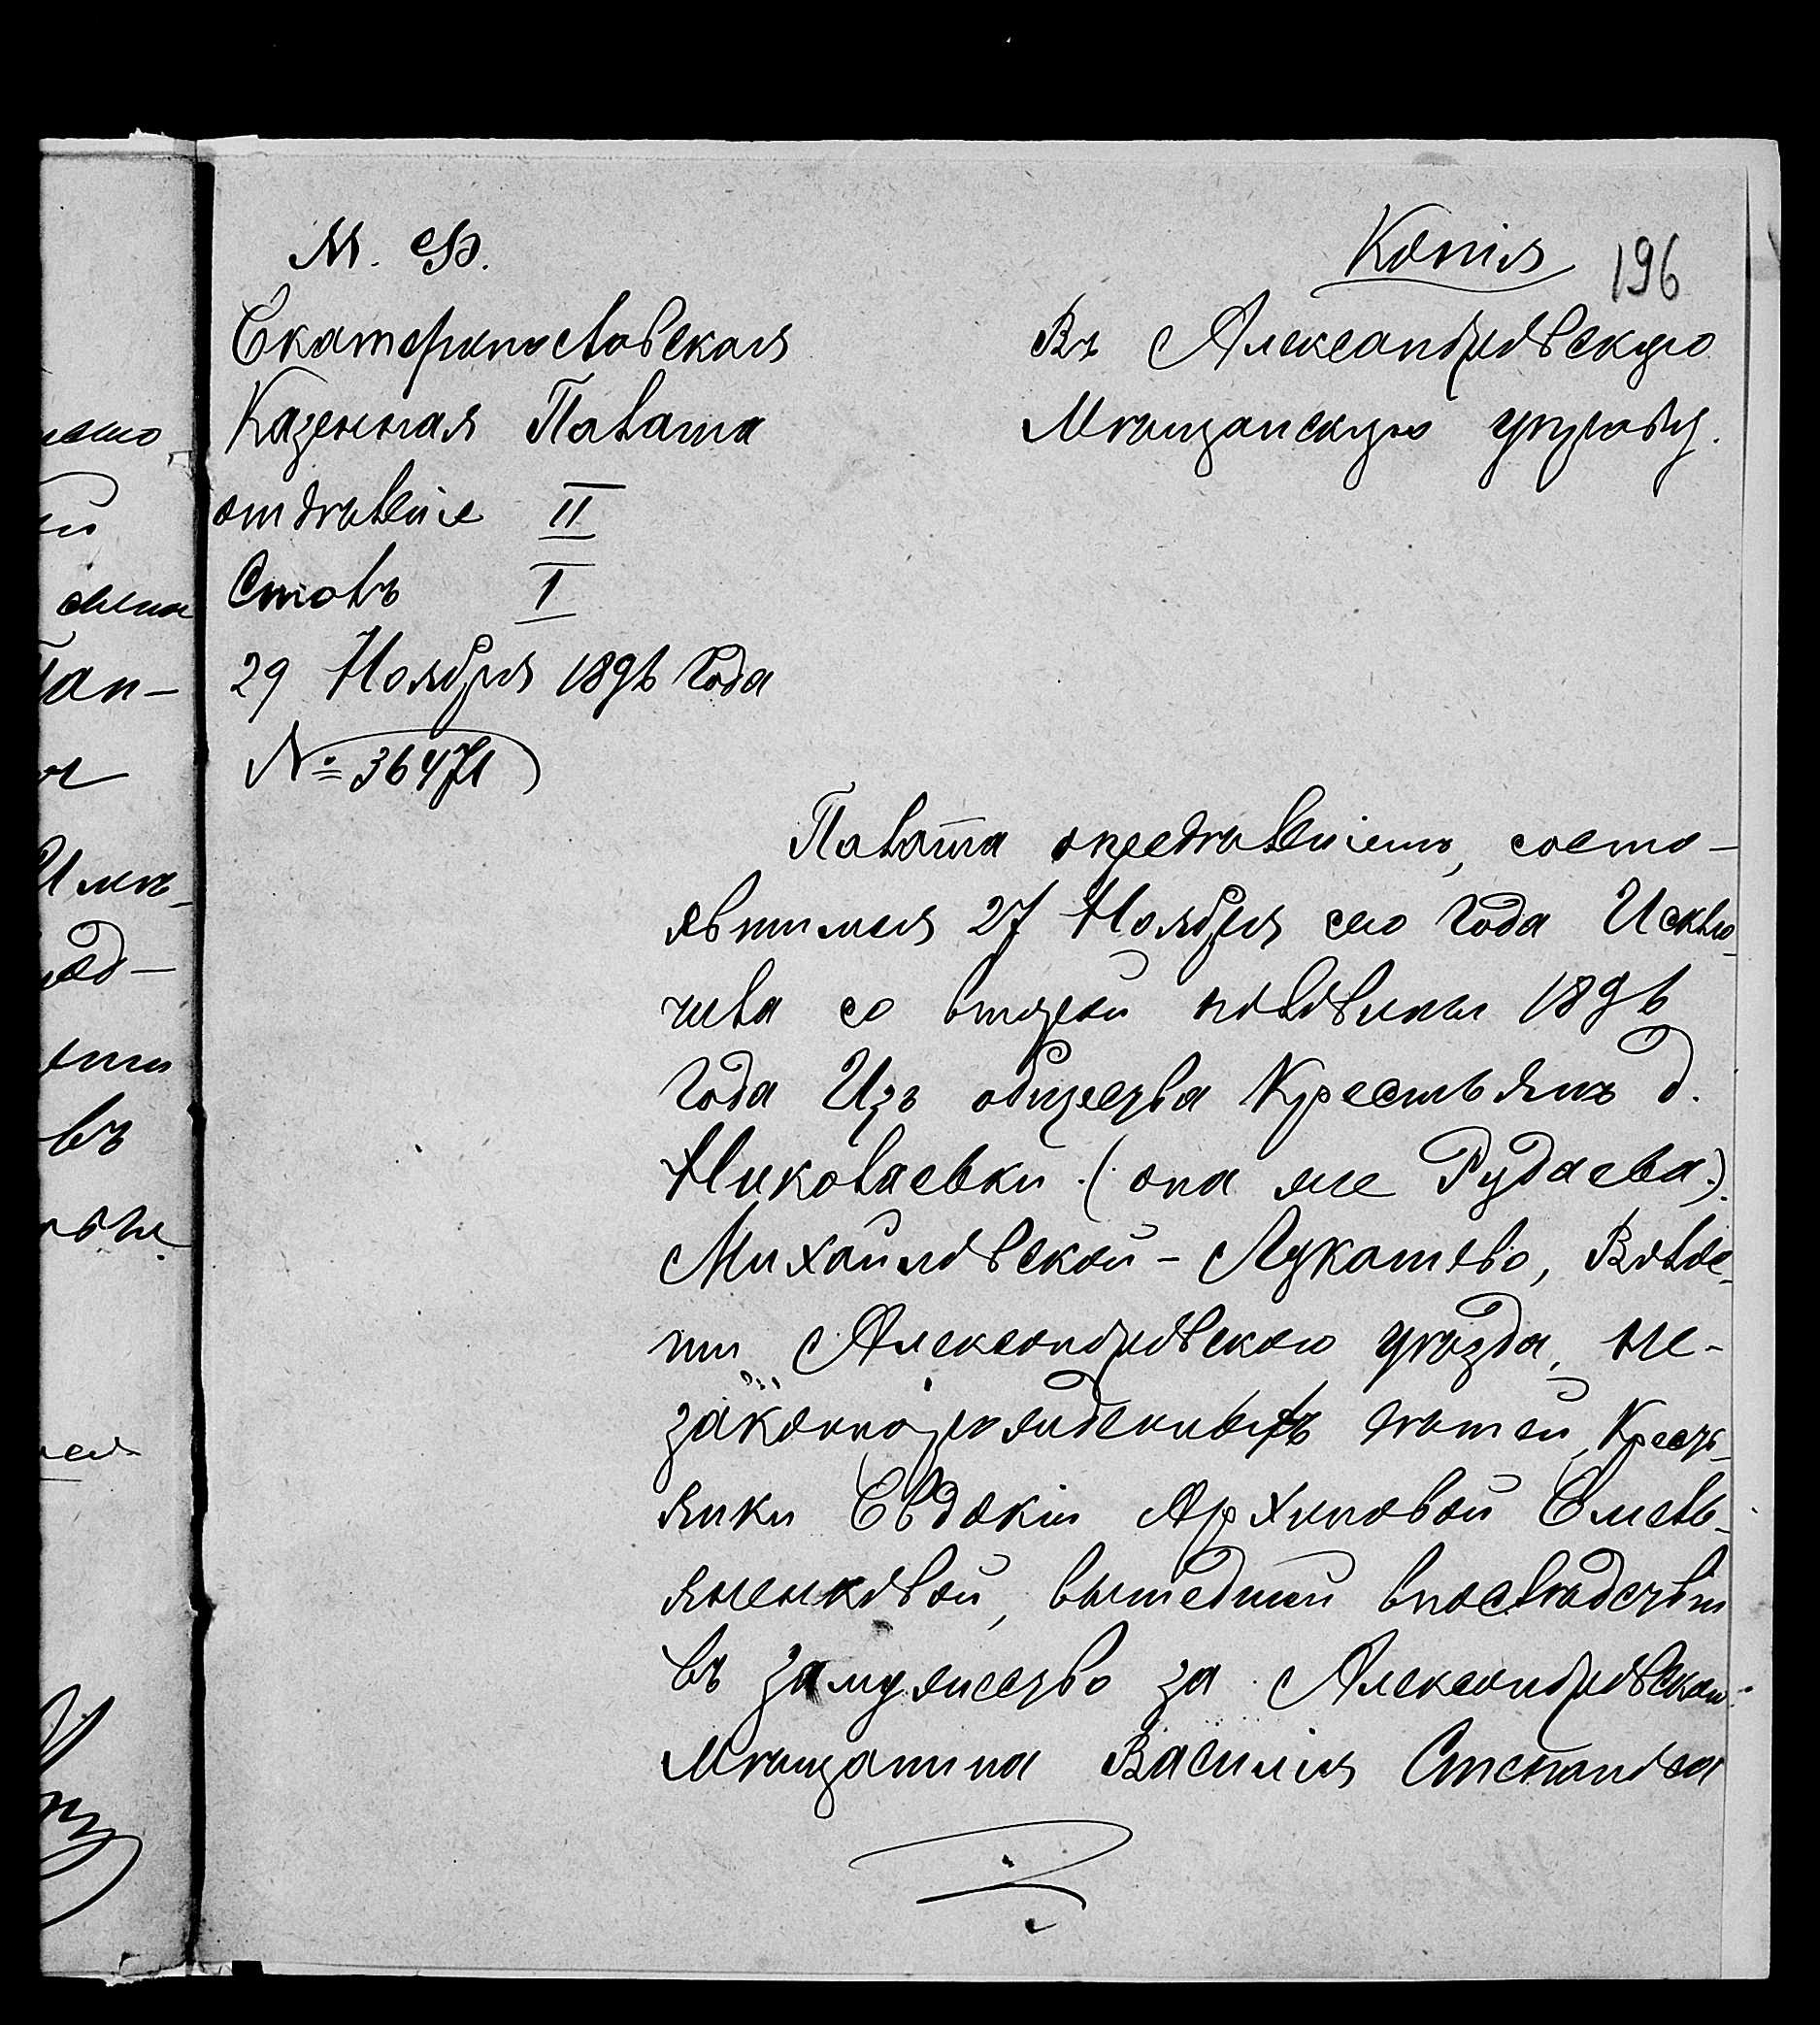 М. Ф.
Копія 196
Екатеринославская
Казенная Палата
отдѣленіе II
Столъ I
29 Ноября 1896 Года
№ 36471
Въ Александровскую
Мѣщанскую управу.
Палата опредѣленіемъ, состо-
явшимся 27 Ноября сего Года Исклю-
чила со второй половины 1896
Года Изъ общества Крестьянъ д.
Николаевки (она же Рудаева)
Михайловской-Лукашево, Волос-
ти, Александровскаго уѣзда, не-
законнорожденныхъ дѣтей, Кресть-
янки Евдокіи Архиповой Емель-
яненковой, вышедшей впослѣдствіи
въ замужество за Александровскаго
Мѣщанина Василія Степанова